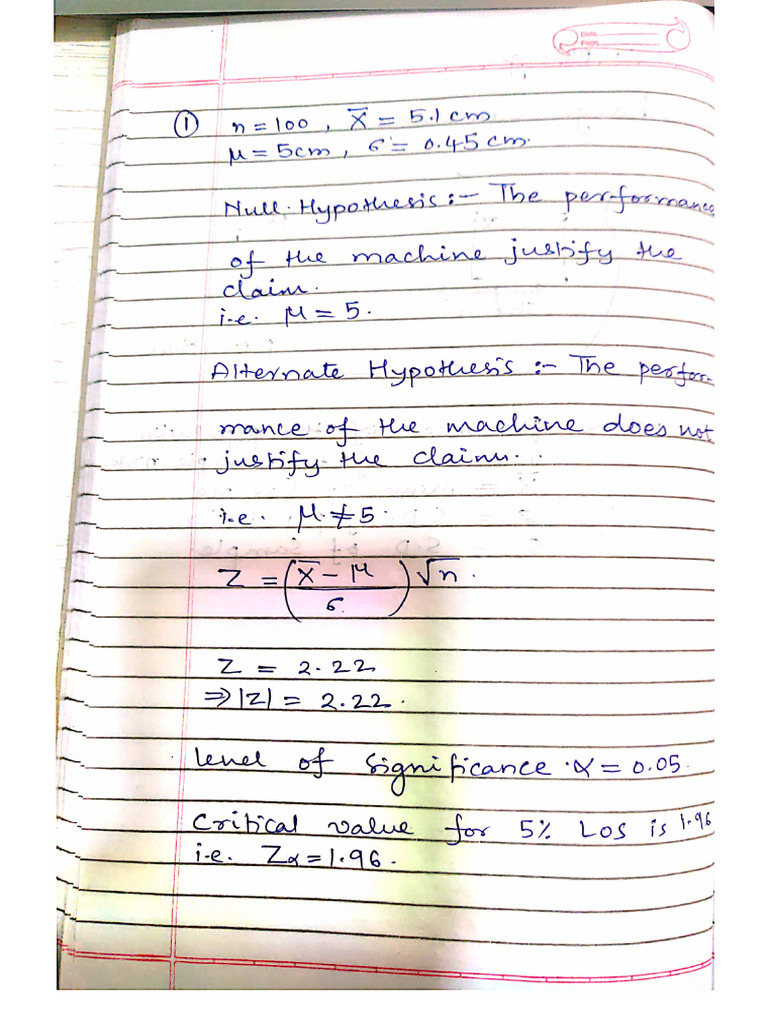 Date
Page
① n = 100 , X̅ = 5.1 cm
μ = 5cm , σ = 0.45 cm.
Null Hypothesis :- The performance
of the machine justify the
claim.
i.e. μ = 5.
Alternate Hypothesis :- The perfor-
mance of the machine does not
justify the claim.
i.e. μ ≠ 5.
Z = (X̅ - μ / σ) √n .
Z = 2.22
⇒ |Z| = 2.22 .
level of significance α = 0.05.
Critical value for 5% LOS is 1.96
i.e. Zα = 1.96 .